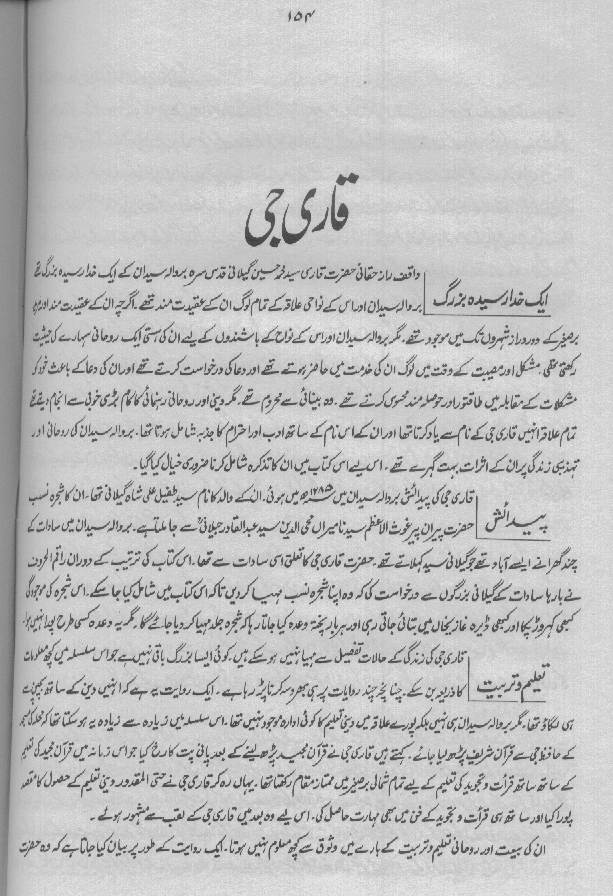 ۱۵۴
قاری جی
ایک خدا رسیدہ بزرگ
واقف راز حقانی حضرت قاری سید محمد حسین گیلانی قدس سرہ بروالہ سیدان کے ایک خدا رسیدہ بزرگ تھے
بروالہ سیدان اور اس کے نواحی علاقہ کے تمام لوگ ان کے عقیدت مند تھے۔ اگرچہ ان کے عقیدت مند اور
برصغیر کے دور دراز شہروں تک میں موجود تھے۔ مگر بروالہ سیدان اور اس کے نواح کے باشندوں کے لیے ان کی ہستی ایک روحانی سہارے کی حیثیت
رکھتی تھی۔ مشکل اور مصیبت کے وقت میں لوگ ان کی خدمت میں حاضر ہوتے تھے اور دعا کی درخواست کرتے تھے اور ان کی دعا کے باعث خود کو
مشکلات کے مقابلہ میں طاقتور اور حوصلہ مند محسوس کرتے تھے۔ وہ بینائی سے محروم تھے۔ مگر دینی اور روحانی رہنمائی کا کام بڑی خوبی سے انجام دیتے تھے
تمام علاقہ انہیں قاری جی کے نام سے یاد کرتا تھا اور ان کے اس نام کے ساتھ ادب اور احترام کا جذبہ شامل ہوتا تھا۔ بروالہ سیدان کی روحانی اور
تہذیبی زندگی پر ان کے اثرات بہت گہرے تھے۔ اس لیے اس کتاب میں ان کا تذکرہ شامل کرنا ضروری خیال کیا گیا۔
پیدائش
قاری جی کی پیدائش بروالہ سیدان میں ۱۲۸۵ھ میں ہوئی۔ ان کے والد کا نام سید طفیل علی شاہ گیلانی تھا۔ ان کا شجرہ نسب
حضرت پیران پیر غوث الاعظم سیدنا میراں محی الدین سید عبدالقادر جیلانیؒ سے جا ملتا ہے۔ بروالہ سیدان میں سادات کے
چند گھرانے ایسے آباد تھے جو گیلانی سید کہلاتے تھے۔ حضرت قاری جی کا تعلق اسی سادات سے تھا۔ اس کتاب کی ترتیب کے دوران راقم الحروف
نے بارہا سادات کے گیلانی بزرگوں سے درخواست کی کہ وہ اپنا شجرہ نسب مہیا کر دیں تاکہ اس کتاب میں شامل کیا جا سکے۔ اس شجرہ کی موجودگی
کبھی کہروڑ پکا اور کبھی ڈیرہ غازیخاں میں بتائی جاتی رہی اور ہر بار پختہ وعدہ کیا جاتا رہا کہ شجرہ جلد مہیا کر دیا جائے گا۔ مگر یہ وعدہ کسی طرح پورا نہیں ہوا۔
تعلیم و تربیت
قاری جی کی زندگی کے حالات تفصیل سے مہیا نہیں ہو سکے ہیں۔ کوئی ایسا بزرگ باقی نہیں ہے جو اس سلسلہ میں کچھ معلومات
کا ذریعہ بن سکے۔ چنانچہ چند روایات پر ہی بھروسہ کرنا پڑ رہا ہے۔ ایک روایت یہ ہے کہ انہیں دین کے ساتھ بچپن سے
ہی لگاؤ تھا۔ مگر بروالہ سیدان ہی نہیں بلکہ پورے علاقہ میں دینی تعلیم کا کوئی ادارہ موجود نہیں تھا۔ اس سلسلہ میں زیادہ سے زیادہ یہ ہو سکتا تھا کہ محلہ کی مسجد
کے حافظ جی سے قرآن شریف پڑھ لیا جائے۔ کہتے ہیں قاری جی نے قرآن مجید پڑھ لینے کے بعد پانی پت کا رخ کیا جو اس زمانہ میں قرآن مجید کی تعلیم
کے ساتھ ساتھ قرأت و تجوید کی تعلیم کے لیے تمام شمالی برصغیر میں ممتاز مقام رکھتا تھا۔ یہاں رہ کر قاری جی نے حتی المقدور دینی تعلیم کے حصول کا مقصد
پورا کیا اور ساتھ ہی قرأت و تجوید کے فن میں بھی مہارت حاصل کی۔ اس لیے وہ بعد میں قاری جی کے لقب سے مشہور ہوئے۔
ان کی بیعت اور روحانی تعلیم و تربیت کے بارے میں وثوق سے کچھ معلوم نہیں ہوتا۔ ایک روایت کے طور پر بیان کیا جاتا ہے کہ وہ حضرت